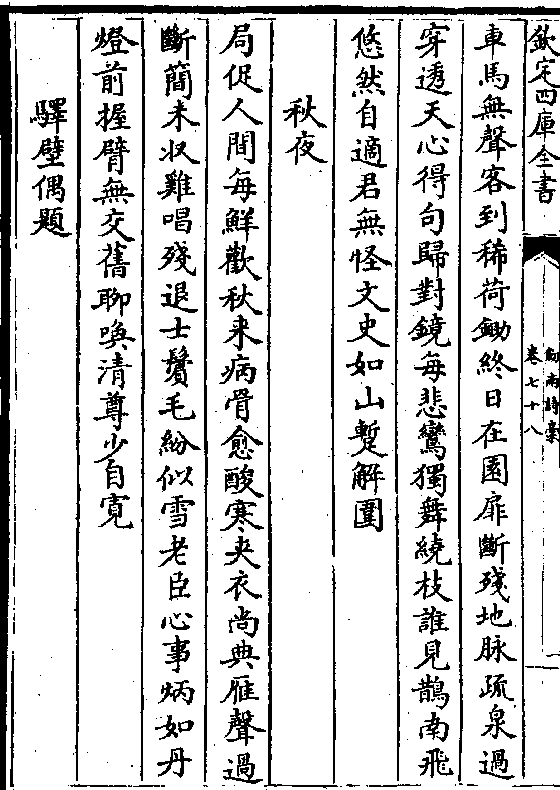 欽定四庫全書
劍南詩稾
卷七十八
車馬無聲客到稀荷鋤終日在園扉斷殘地脉疏泉過
穿透天心得句歸對鏡每悲鸞獨舞繞枝誰見鵲南飛
悠然自適君無怪文史如山蹔解圍
秋夜
局促人間每鮮歡秋来病骨愈酸寒夾衣尚典雁聲過
斷蕳未収雞唱殘退士鬢毛紛似雪老臣心事炳如丹
燈前握臂無交舊聊喚清尊少自寛
驛壁偶題